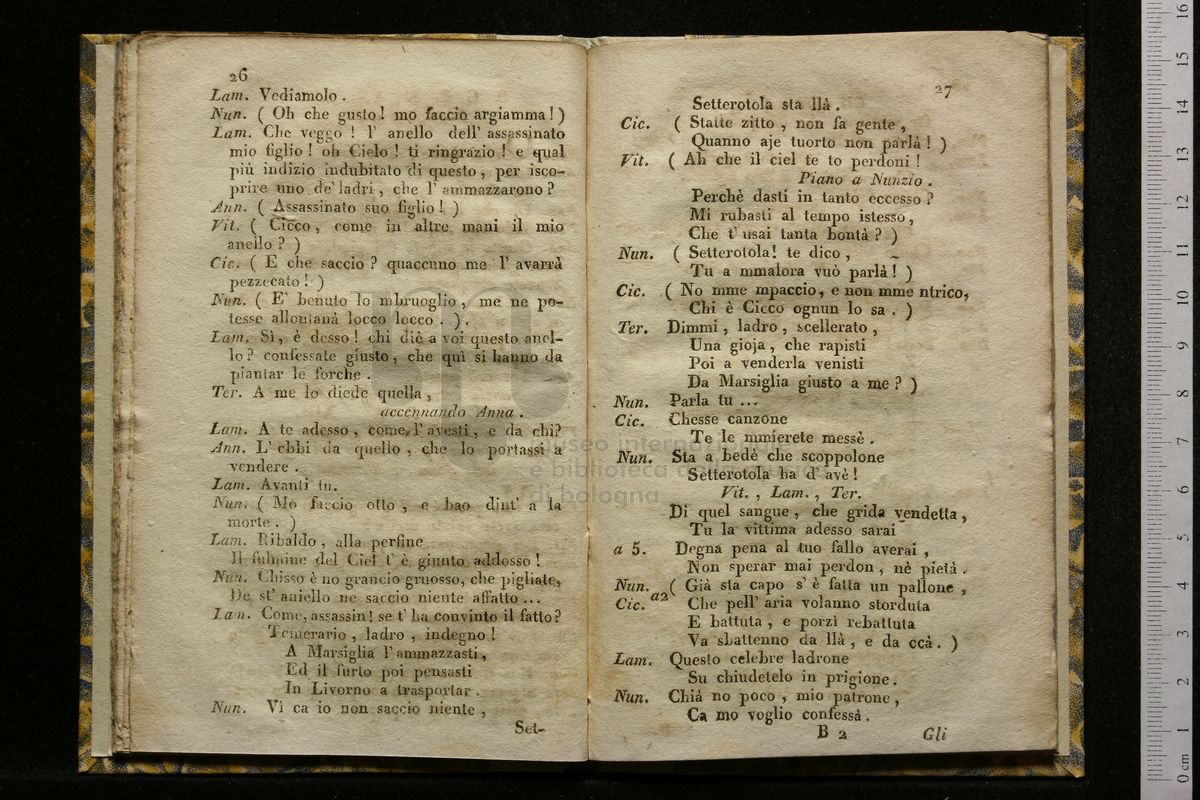 26
Lam. Vediamolo.
Nun. ( Oh che gusto! mo faccio argiamma! )
Lam. Che veggo ! l' anello dell' assassinato
mio figlio ! oh Cielo ! ti ringrazio ! e qual
più indizio indubitato di questo , per isco-
prire uno de' ladri , che l' ammazzarono ?
Ann. ( Assassinato suo figlio ! )
Vit. ( Cicco , come in altre mani il mio
anello ? )
Cic. ( E che saccio ? quaccuno me l' avarrà
pezzecato ! )
Nun. ( E' benuto lo mbruoglio , me ne po-
tesse allontanà locco locco . ).
Lam. Sì , è desso ! chi diè a voi questo anel-
lo ? confessate giusto , che quì si hanno da
piantar le forche .
Ter. A me lo diede quella ,
accennando Anna .
Lam. A te adesso , come l' avesti , e da chi?
Ann. L' ebbi da quello , che lo portassi a
vendere .
Lam. Avanti tu.
Nun. ( Mo faccio otto , e bao dint' a la
morte . )
Lam. Ribaldo , alla perfine
Il fulmine del Ciel t' è giunto addosso !
Nun. Chisso è no grancio gruosso, che pigliate,
De st' aniello ne saccio niente affatto ...
Lam. Come, assassin! se t' ha convinto il fatto?
Temerario , ladro , indegno !
A Marsiglia l'ammazzasti ,
Ed il furto poi pensasti
In Livorno a trasportar .
Nun. Vì ca io non saccio niente ,
Set-
27
Setterotola sta llà .
Cic. ( Statte zitto , non fa gente ,
Quanno aje tuorto non parlà ! )
Vit. ( Ah che il ciel te to perdoni !
Piano a Nunzio .
Perchè dasti in tanto eccesso ?
Mi rubasti al tempo istesso ,
Che t' usai tanta bontà ? )
Nun. ( Setterotola! te dico ,
Tu a mmalora vuò parlà ! )
Cic. ( No mme mpaccio, e non mme ntrico,
Chi è Cicco ognun lo sa . )
Ter. Dimmi , ladro , scellerato ,
Una gioja , che rapisti
Poi a venderla venisti
Da Marsiglia giusto a me ? )
Nun. Parla tu ...
Cic. Chesse canzone
Te le mmierete messè .
Nun. Sta a bedè che scoppolone
Setterotola ha d' avè !
Vit. , Lam. , Ter.
Di quel sangue , che grida vendetta ,
Tu la vittima adesso sarai
a 5. Degna pena al tuo fallo averai ,
Non sperar mai perdon , nè pietà .
Nun. ( Già sta capo s' è fatta un pallone ,
Cic. a2 Che pell' aria volanno storduta
E battuta , e porzì rebattuta
Va sbattenno da llà , e da ccà . )
Lam. Questo celebre ladrone
Su chiudetelo in prigione .
Nun. Chià no poco , mio patrone ,
Ca mo voglio confessà .
B 2 Gli
museo internazionale
e biblioteca della musica
di bologna
0 cm 1 2 3 4 5 6 7 8 9 10 11 12 13 14 15 16